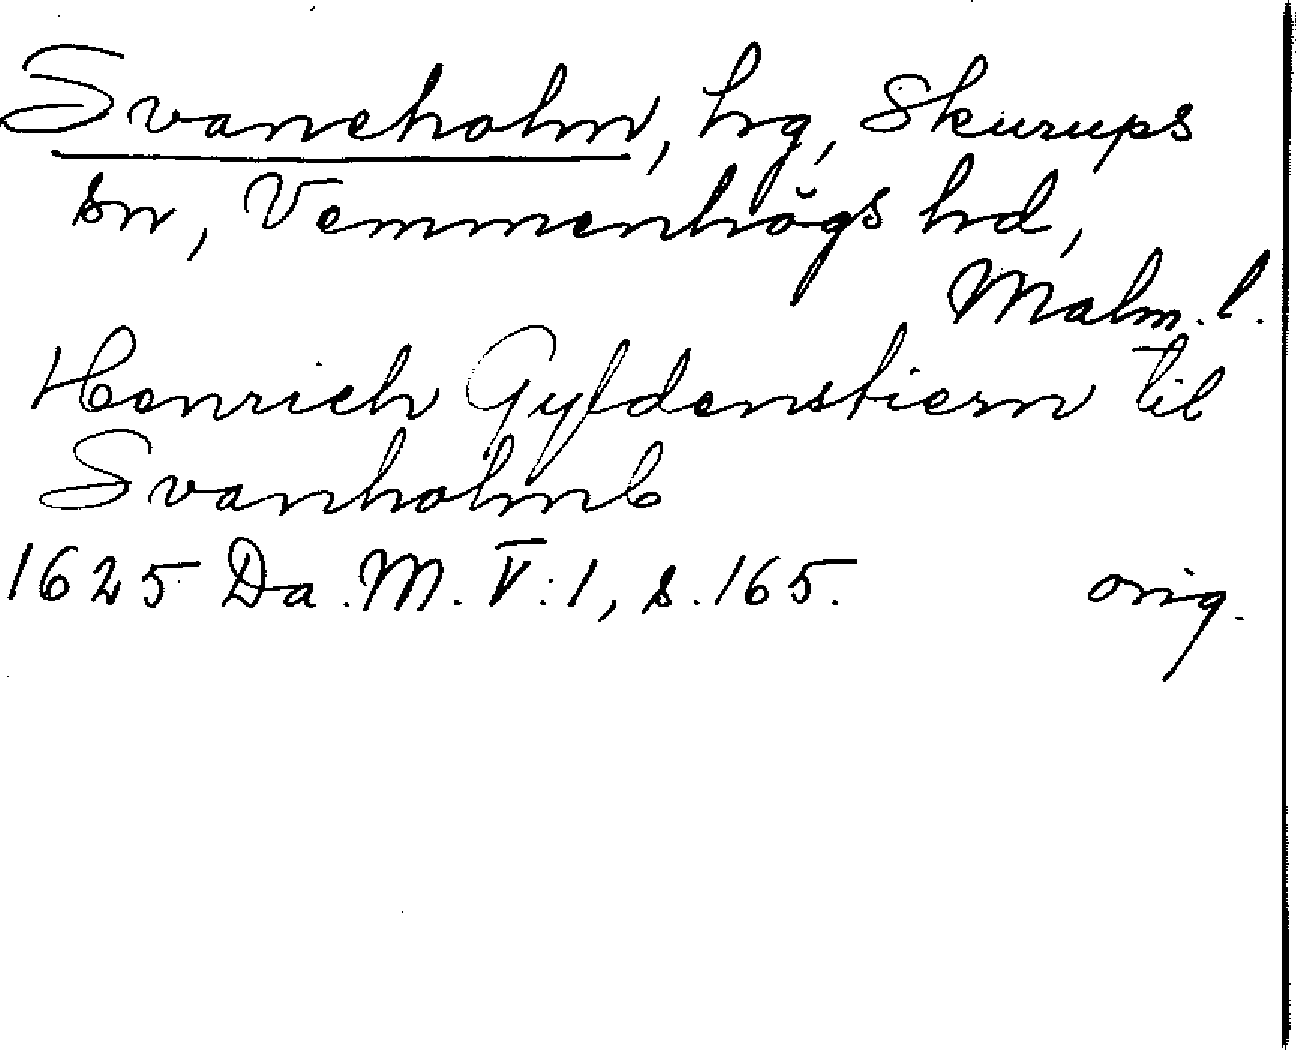 Svaneholm, hg, Skurups
sn, Vemmenhögs hd,
Malm. l.
Henrich Gyldenstiern til
Svanholmb
1625 Da. M. V:1, s. 165. orig.